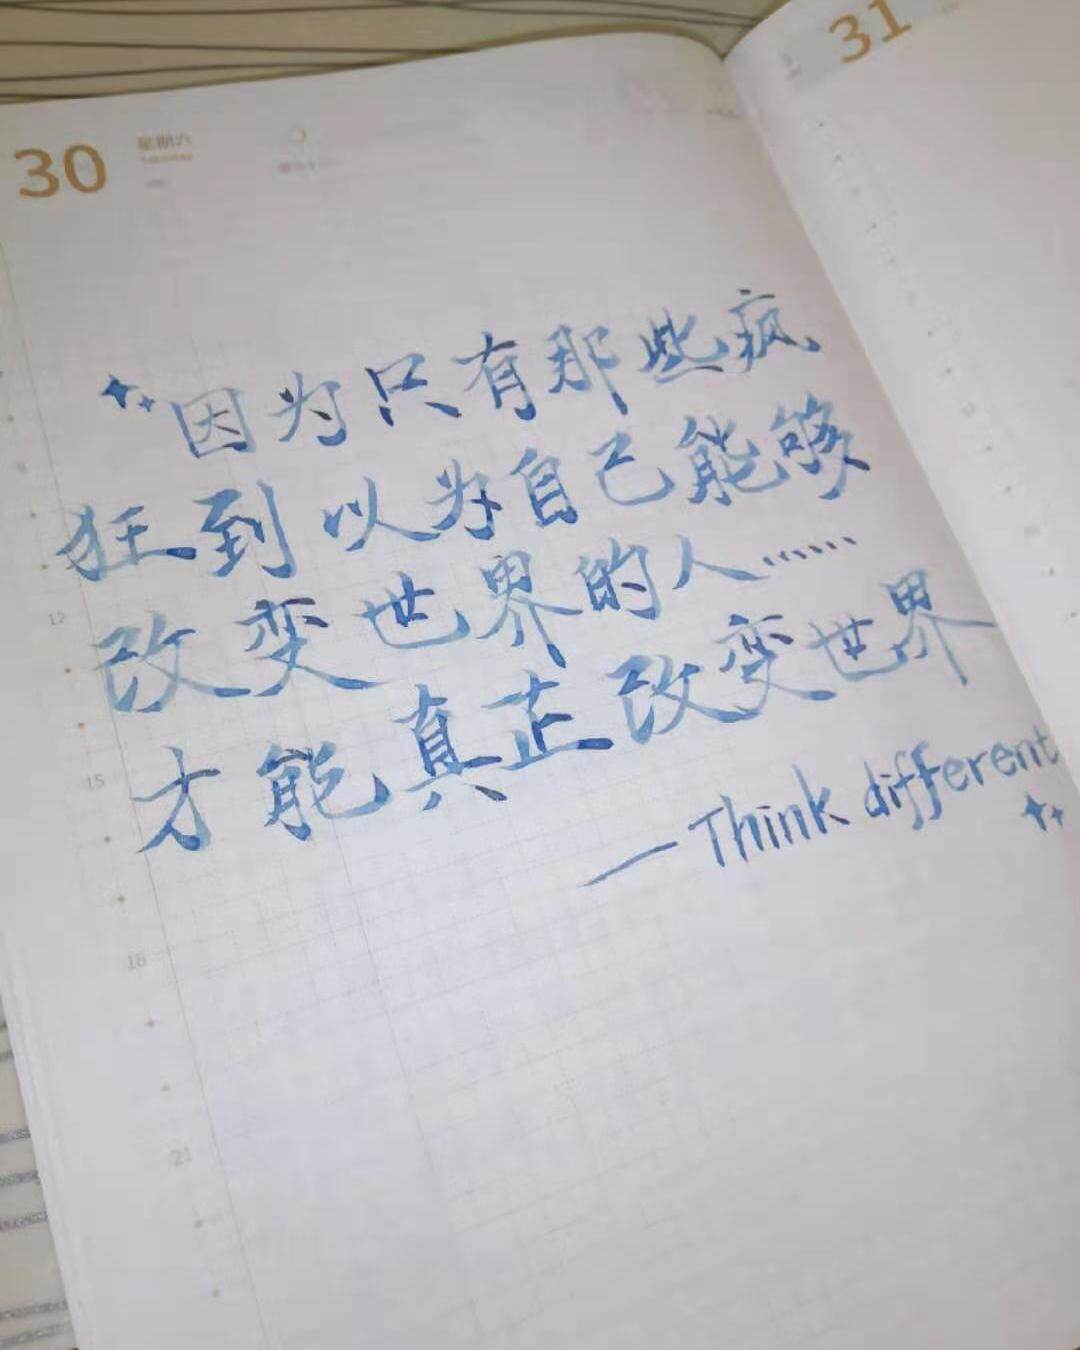 31
30 星期六
因为只有那些疯
狂到以为自己能够
改变世界的人……
才能真正改变世界
—Think different
12
15
18
21